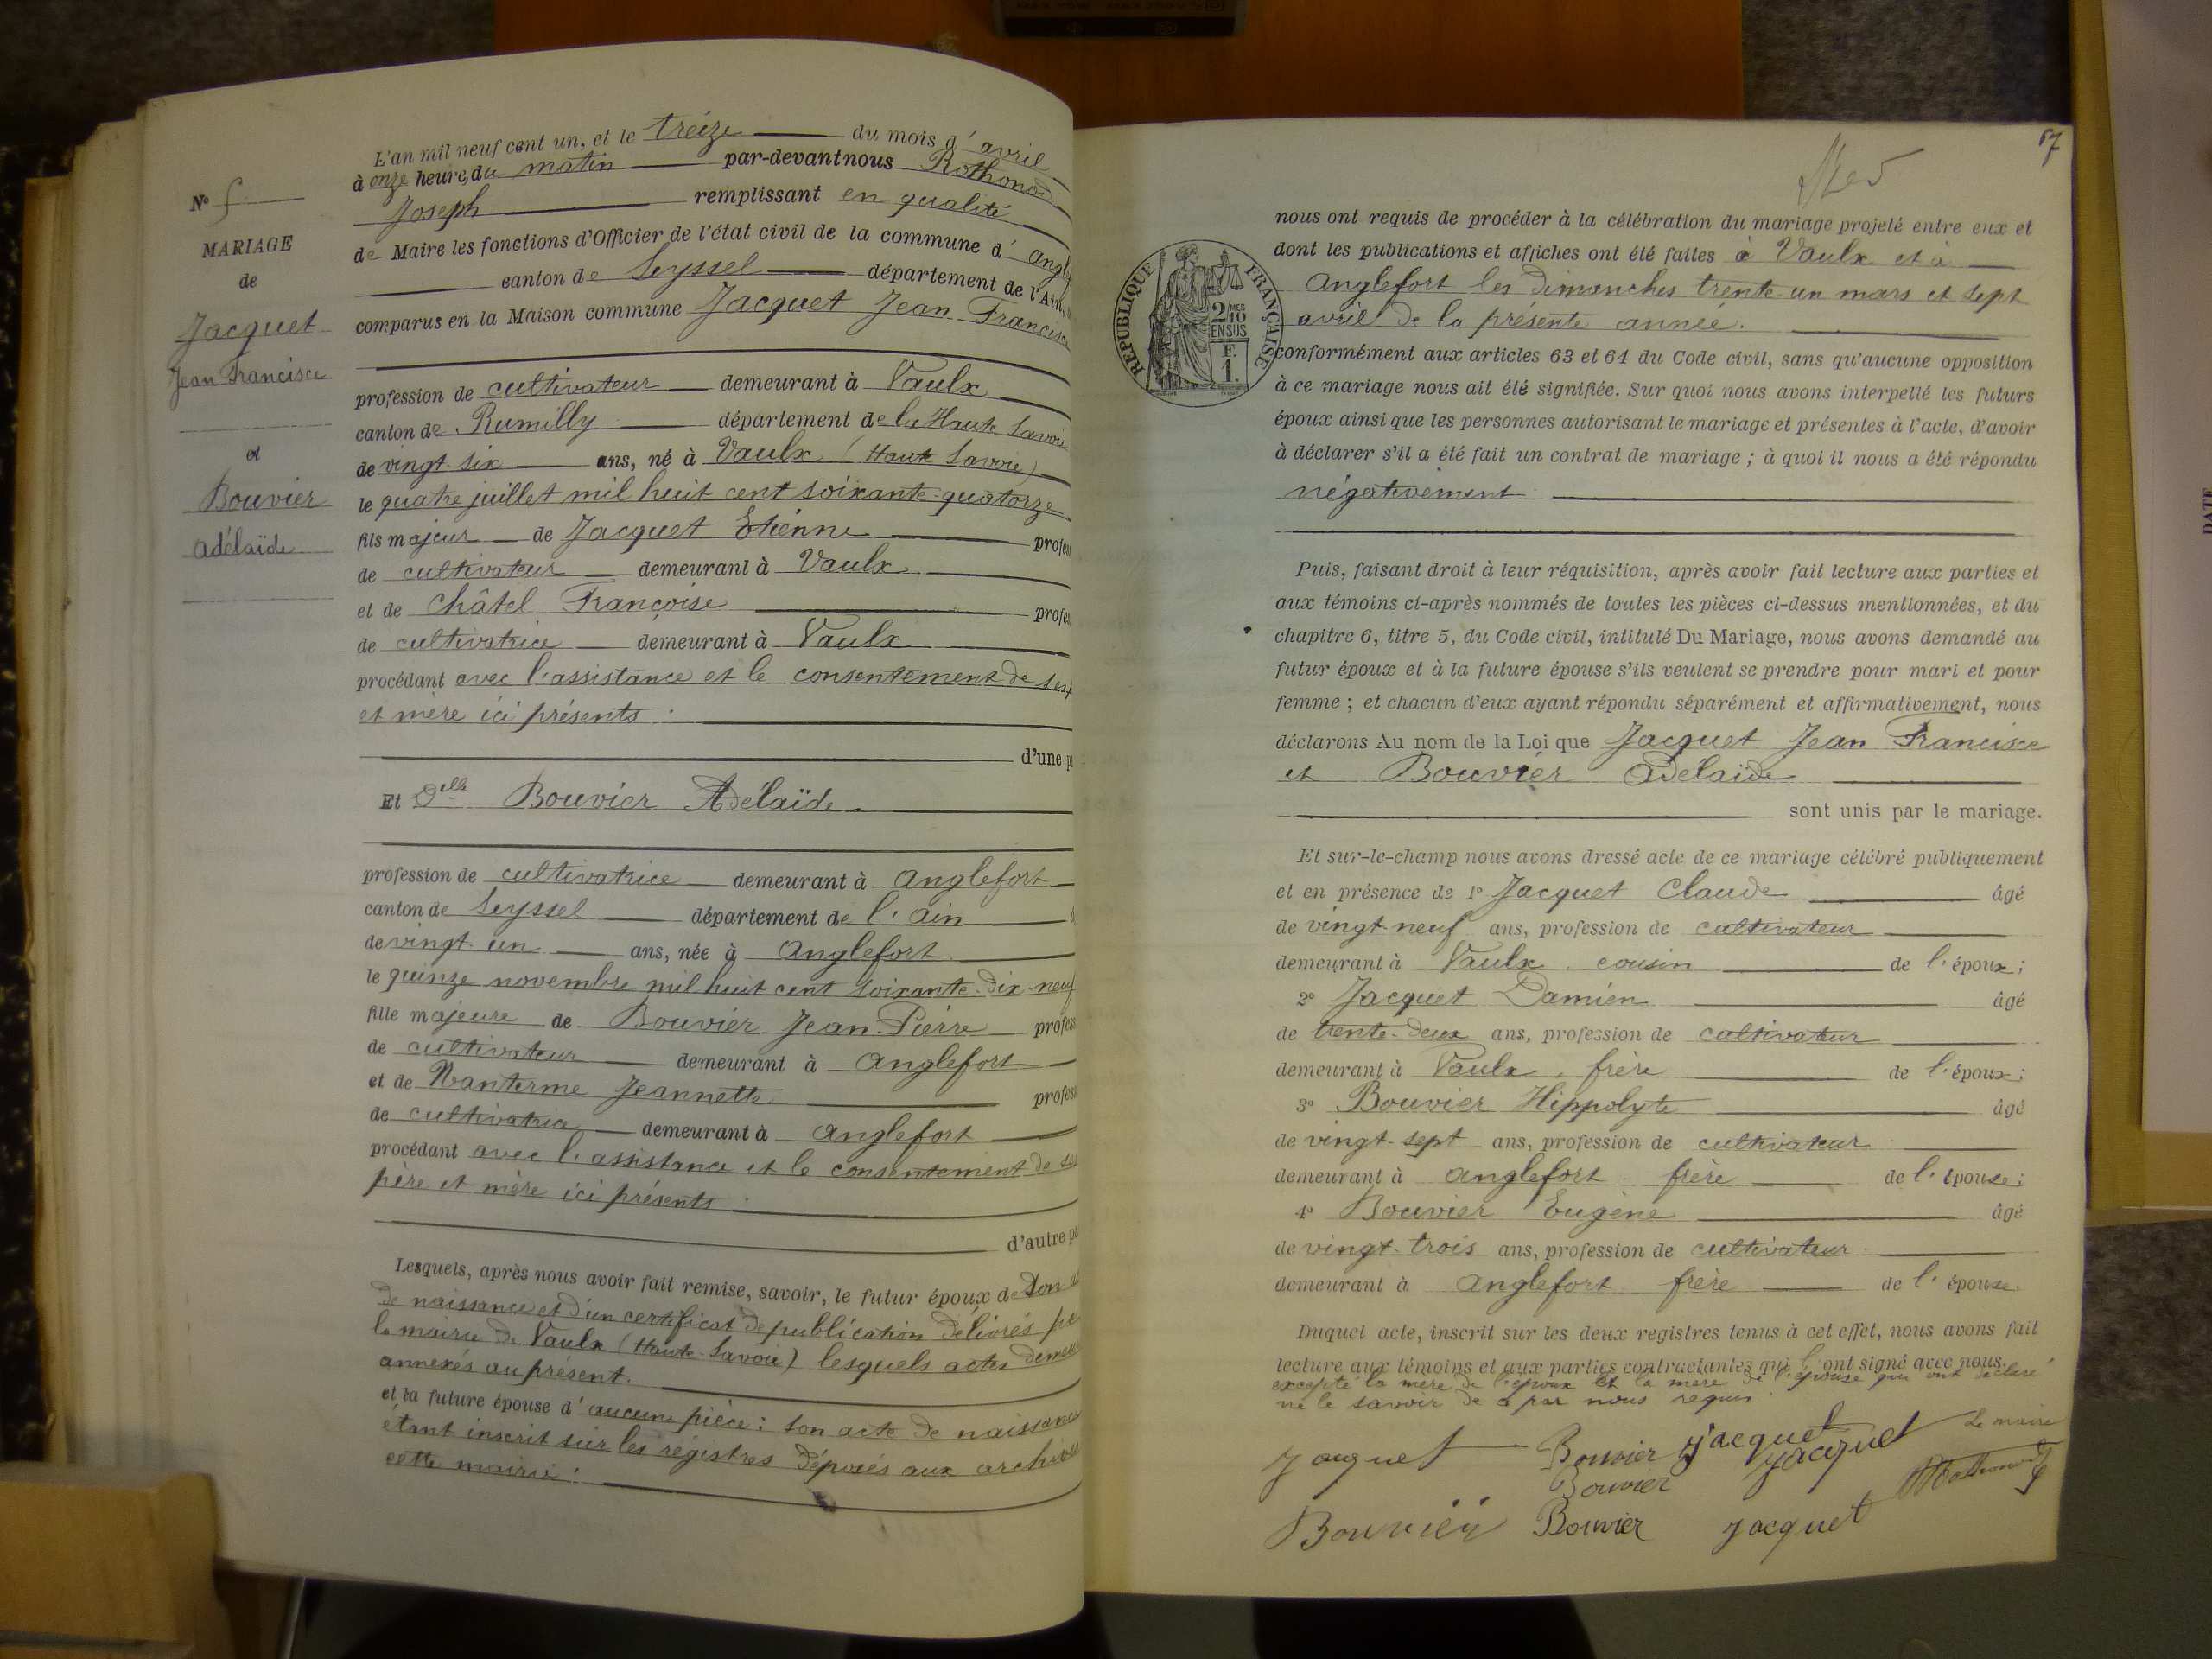 N° 5
MARIAGE
de
Jacquet
Jean Francisce
et
Bouvier
Adélaïde
L'an mil neuf cent un, et le treize du mois d'avril
à onze heure, du matin par-devant nous Rothonod
Joseph remplissant en qualité
de Maire les fonctions d'Officier de l'état civil de la commune d'Angl
canton de Seyssel département de l'Ain,
comparus en la Maison commune Jacquet Jean Francisce
profession de cultivateur demeurant à Vaulx
canton de Rumilly département de la Haute Savoie
de vingt-six ans, né à Vaulx (Haute Savoie)
le quatre juillet mil huit cent soixante-quatorze
fils majeur de Jacquet Etienne profes
de cultivateur demeurant à Vaulx
et de Châtel Françoise profes
de cultivatrice demeurant à Vaulx
procédant avec l'assistance et le consentement de ses p
et mère ici présents.
d'une p
Et Delle Bouvier Adélaïde
profession de cultivatrice demeurant à Anglefort
canton de Seyssel département de l'Ain
de vingt-un ans, née à Anglefort
le quinze novembre mil huit cent soixante-dix-neuf
fille majeure de Bouvier Jean Pierre profess
de cultivateur demeurant à Anglefort
et de Nanterme Jeannette profess
de cultivatrice demeurant à Anglefort
procédant avec l'assistance et le consentement de ses
père et mère ici présents.
d'autre pa
Lesquels, après nous avoir fait remise, savoir, le futur époux de son
de naissance et d'un certificat de publication délivrés pa
la mairie de Vaulx (Haute-Savoie) lesquels actes demeu
annexés au présent.
et la future épouse d'aucune pièce: son acte de naissance
étant inscrit sur les registres déposés aux archives
cette mairie.
67
RÉPUBLIQUE FRANÇAISE
2/10 MES
EN SUS
F.
1.
nous ont requis de procéder à la célébration du mariage projeté entre eux et
dont les publications et affiches ont été faites à Vaulx et à
Anglefort les dimanches trente un mars et sept
avril de la présente année.
conformément aux articles 63 et 64 du Code civil, sans qu'aucune opposition
à ce mariage nous ait été signifiée. Sur quoi nous avons interpellé les futurs
époux ainsi que les personnes autorisant le mariage et présentes à l'acte, d'avoir
à déclarer s'il a été fait un contrat de mariage ; à quoi il nous a été répondu
négativement
Puis, faisant droit à leur réquisition, après avoir fait lecture aux parties et
aux témoins ci-après nommés de toutes les pièces ci-dessus mentionnées, et du
chapitre 6, titre 5, du Code civil, intitulé Du Mariage, nous avons demandé au
futur époux et à la future épouse s'ils veulent se prendre pour mari et pour
femme ; et chacun d'eux ayant répondu séparément et affirmativement, nous
déclarons Au nom de la Loi que Jacquet Jean Francisce
et Bouvier Adélaïde
sont unis par le mariage.
Et sur-le-champ nous avons dressé acte de ce mariage célébré publiquement
et en présence de 1° Jacquet Claude âgé
de vingt-neuf ans, profession de cultivateur
demeurant à Vaulx, cousin de l'époux;
2° Jacquet Damien âgé
de trente-deux ans, profession de cultivateur
demeurant à Vaulx, frère de l'époux;
3° Bouvier Hippolyte âgé
de vingt-sept ans, profession de cultivateur
demeurant à Anglefort frère de l'épouse;
4° Bouvier Eugène âgé
de vingt-trois ans, profession de cultivateur
demeurant à Anglefort frère de l'épouse.
Duquel acte, inscrit sur les deux registres tenus à cet effet, nous avons fait
lecture aux témoins et aux parties contractantes qui l'ont signé avec nous
excepté la mère de l'époux et la mère de l'épouse qui ont déclaré
ne le savoir de ce par nous requis
Jacquet Bouvier Jacquet Jacquet Le maire
Bouvier Rothonod
Bouvier Bouvier Jacquet
DATE